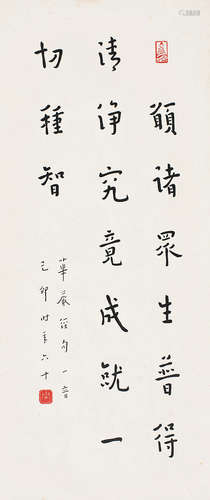 願諸眾生普得
清淨究竟成就一
切種智
華嚴經句 一音
己卯時年六十